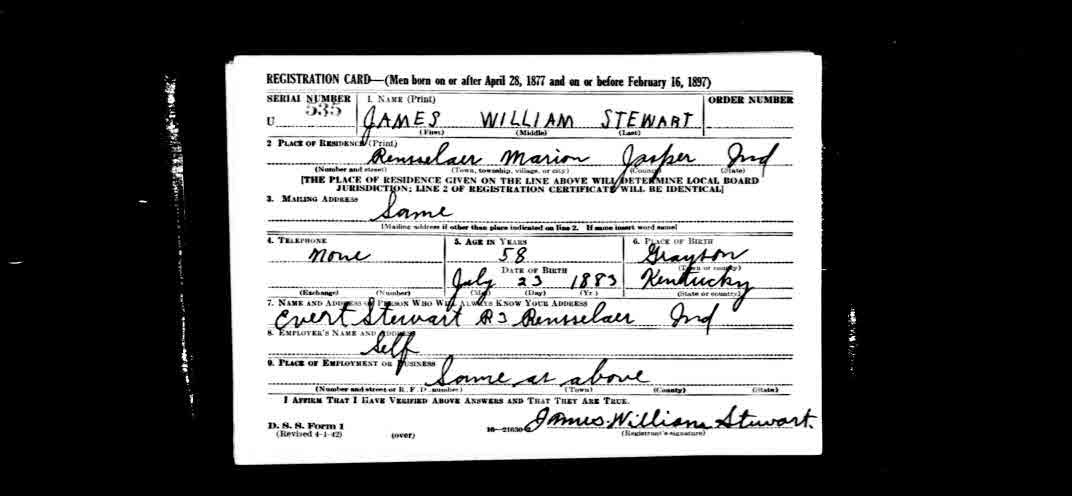 REGISTRATION CARD—(Men born on or after April 28, 1877 and on or before February 16, 1897)
SERIAL NUMBER 1. NAME (Print) ORDER NUMBER
U 535 JAMES WILLIAM STEWART
(First) (Middle) (Last)
2 PLACE OF RESIDENCE (Print)
Rensselaer Marion Jasper Ind
(Number and street) (Town, township, village, or city) (County) (State)
[THE PLACE OF RESIDENCE GIVEN ON THE LINE ABOVE WILL DETERMINE LOCAL BOARD
JURISDICTION; LINE 2 OF REGISTRATION CERTIFICATE WILL BE IDENTICAL]
3. MAILING ADDRESS
Same
[Mailing address if other than place indicated on line 2. If same insert word same]
4. TELEPHONE 5. AGE IN YEARS 6. PLACE OF BIRTH
None 58 Grayson
DATE OF BIRTH (Town or county)
July 23 1883 Kentucky
(Exchange) (Number) (Mo.) (Day) (Yr.) (State or country)
7. NAME AND ADDRESS OF PERSON WHO WILL ALWAYS KNOW YOUR ADDRESS
Evert Stewart R 3 Rensselaer Ind
8. EMPLOYER'S NAME AND ADDRESS
Self
9. PLACE OF EMPLOYMENT OR BUSINESS
Same as above
(Number and street or R. F. D. number) (Town) (County) (State)
I AFFIRM THAT I HAVE VERIFIED ABOVE ANSWERS AND THAT THEY ARE TRUE.
D. S. S. Form 1
(Revised 4-1-42) (over) 16—21630-2 James William Stewart.
(Registrant's signature)